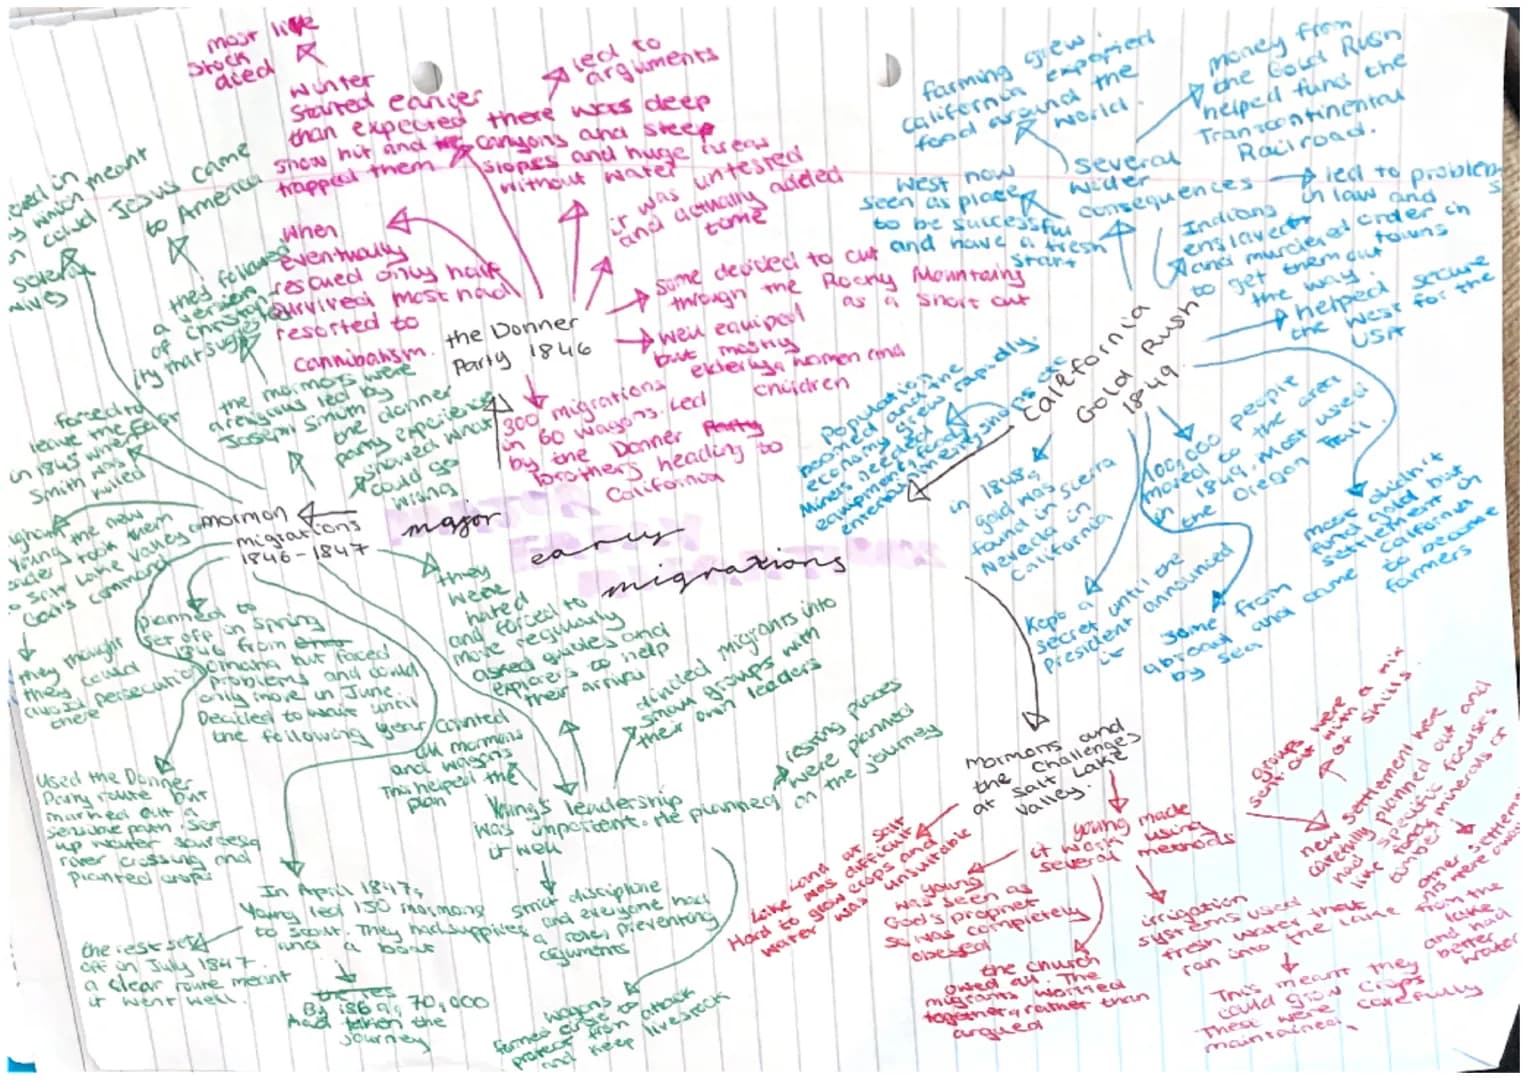 most live
stock
died
winter
started earlier
than expected
snow hit and
trapped them
led to
arguments
there was deep
canyons and steep
slopes and huge areas
without water
it was untested
and actually added
time
when
eventually
rescued only half
survived most had
resorted to
cannibalism.
the Donner
Party 1846
some decided to cut
through the Rocky Mountains
as a short cut
well equiped
but mostly
elderly, women and
children
300 migrations
in 60 wagons. Led
by the Donner Party
brothers heading to
California
the donner
party experience
showed what
could go
wrong
major
early
migrations
mormon
migrations
1846-1847
which meant
could
several
wives
Jesus came
to America
they followed
a version
of christian
ity that sugges
the mormons were
a religious led by
Joseph Smith
forced to
leave the East
in 1845 when
Smith was
killed
Young the new
took them
to Salt Lake Valley
God's command
they thought
they could
avoid persecution
there
planned to
set off in Spring
1846 from
Omaha but faced
problems and could
only move in June
Decided to wait until
the following year
they
were
hated
and forced to
move regularly
asked guides and
explorers to help
their arrival
divided migrants into
small groups with
their own leaders
counted
all mormons
and wagons
This helped the
plan
Young's leadership
was important. He planned
it well
resting places
were planned
on the journey
Used the Donner
Party route but
marked out a
sensible path, set
up water sources,
river crossing and
planted crops
In April 1847,
Young led 150 mormons
to Scout. They had supplies
and a boat
the rest set
off in July 1847.
a clear route meant
it went well.
By 1869, 70,000
had taken the
journey
strict discipline
and everyone had
a role, preventing
arguments
wagons
formed close to
protect from attack
and keep livestock
California
Gold Rush
1849
farming grew.
California exported
food around the
world.
money from
the Gold Rush
helped fund the
Transcontinental
Railroad.
several
wider
consequences
led to problems
in law and
order in
towns
West now
seen as place
to be successful
and have a fresh
start
Indians
enslaved
and murdered
to get them out
the way.
helped secure
the West for the
USA
population
boomed and the
economy grew rapidly.
Miners needed
equipment, food,
entertainment
in 1848,
gold was
found in Sierra
Nevada in
California
100,000 people
moved to the area
in 1849. Most used
the Oregon Trail
Kept a
secret until the
president announced
it
Some from
abroad and came
by sea
most didn't
find gold but
settlement in
California
to become
farmers
Mormons and
the challenges
at Salt Lake
Valley.
Land at Salt
Lake was difficult
Hard to grow crops and
water was unsuitable
young made
it work using
several methods
Young
was seen as
God's Prophet
so was completely
obeyed
the church
owed all. The
migrants worried
together, rather than
argued
irrigation
systems used
fresh water that
ran into the lake
This meant they
could grow crops
These were carefully
maintained.
groups were
sent out with a mix
of skills
new settlement were
carefully planned out and
had specific focuses
like food, minerals or
timber
other settlem
nts were away
from the
lake
and had
better
water